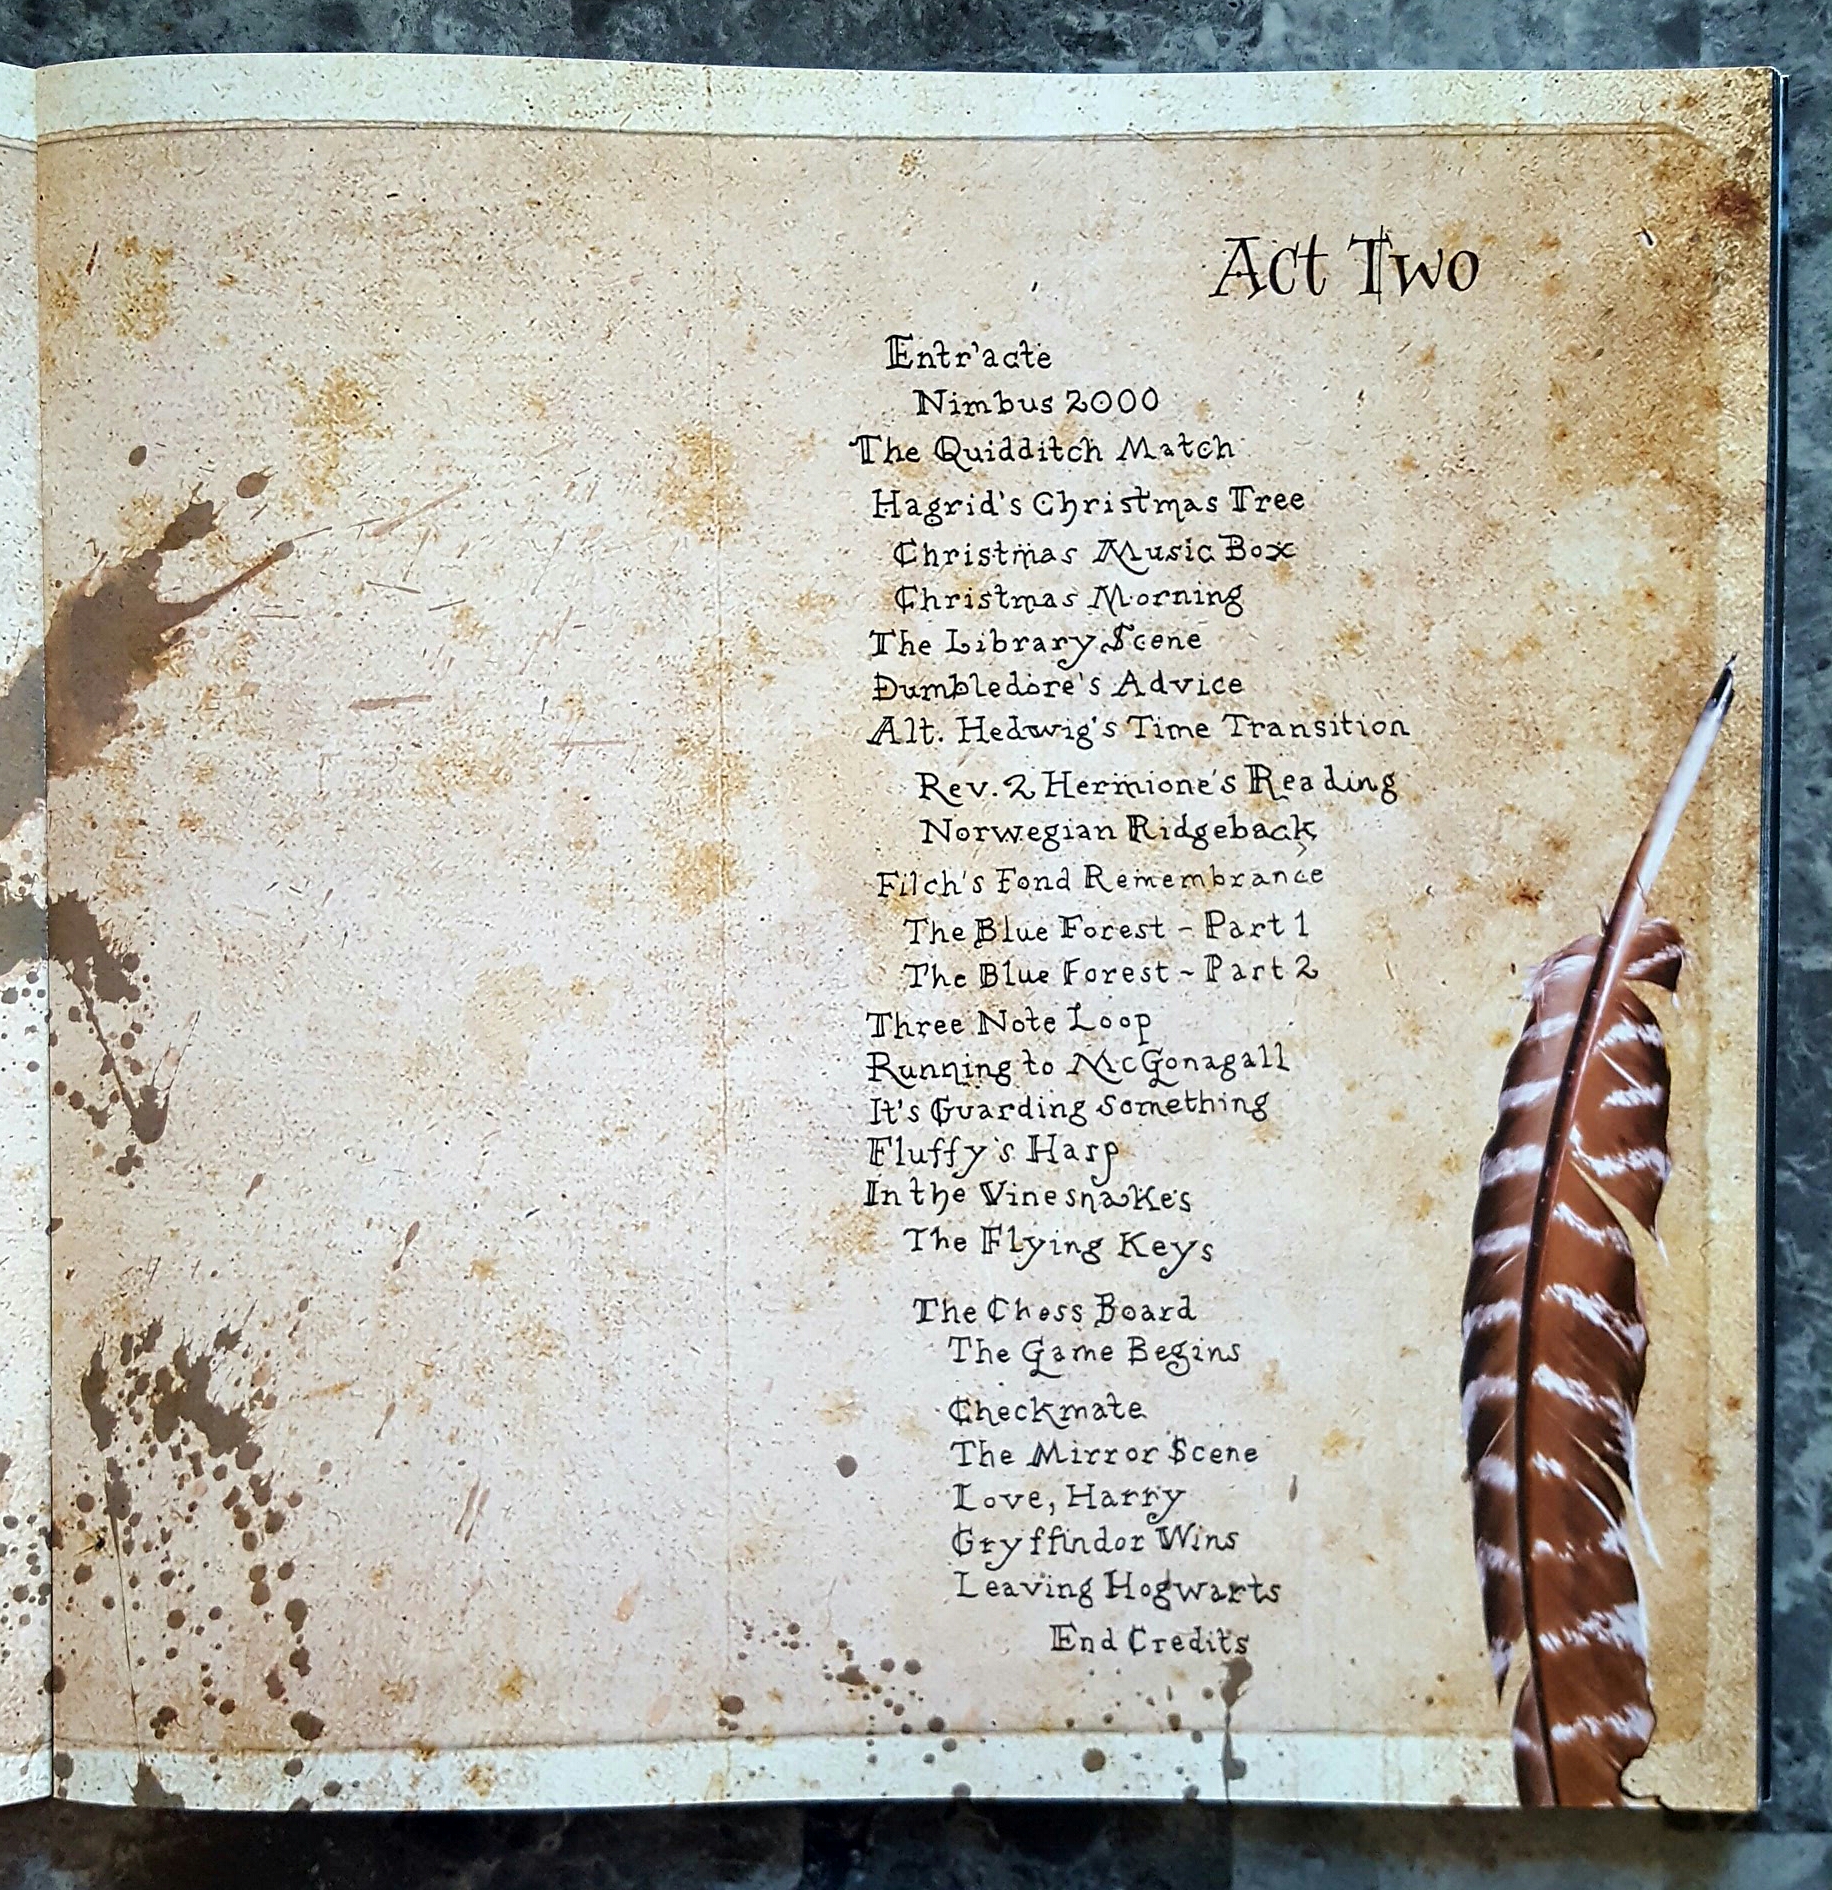 Act Two
Entr'acte
Nimbus 2000
The Quidditch Match
Hagrid's Christmas Tree
Christmas Music Box
Christmas Morning
The Library Scene
Dumbledore's Advice
Alt. Hedwig's Time Transition
Rev. 2 Hermione's Reading
Norwegian Ridgeback
Filch's Fond Remembrance
The Blue Forest ~ Part 1
The Blue Forest ~ Part 2
Three Note Loop
Running to McGonagall
It's Guarding Something
Fluffy's Harp
In the Vinesnakes
The Flying Keys
The Chess Board
The Game Begins
Checkmate
The Mirror Scene
Love, Harry
Gryffindor Wins
Leaving Hogwarts
End Credits